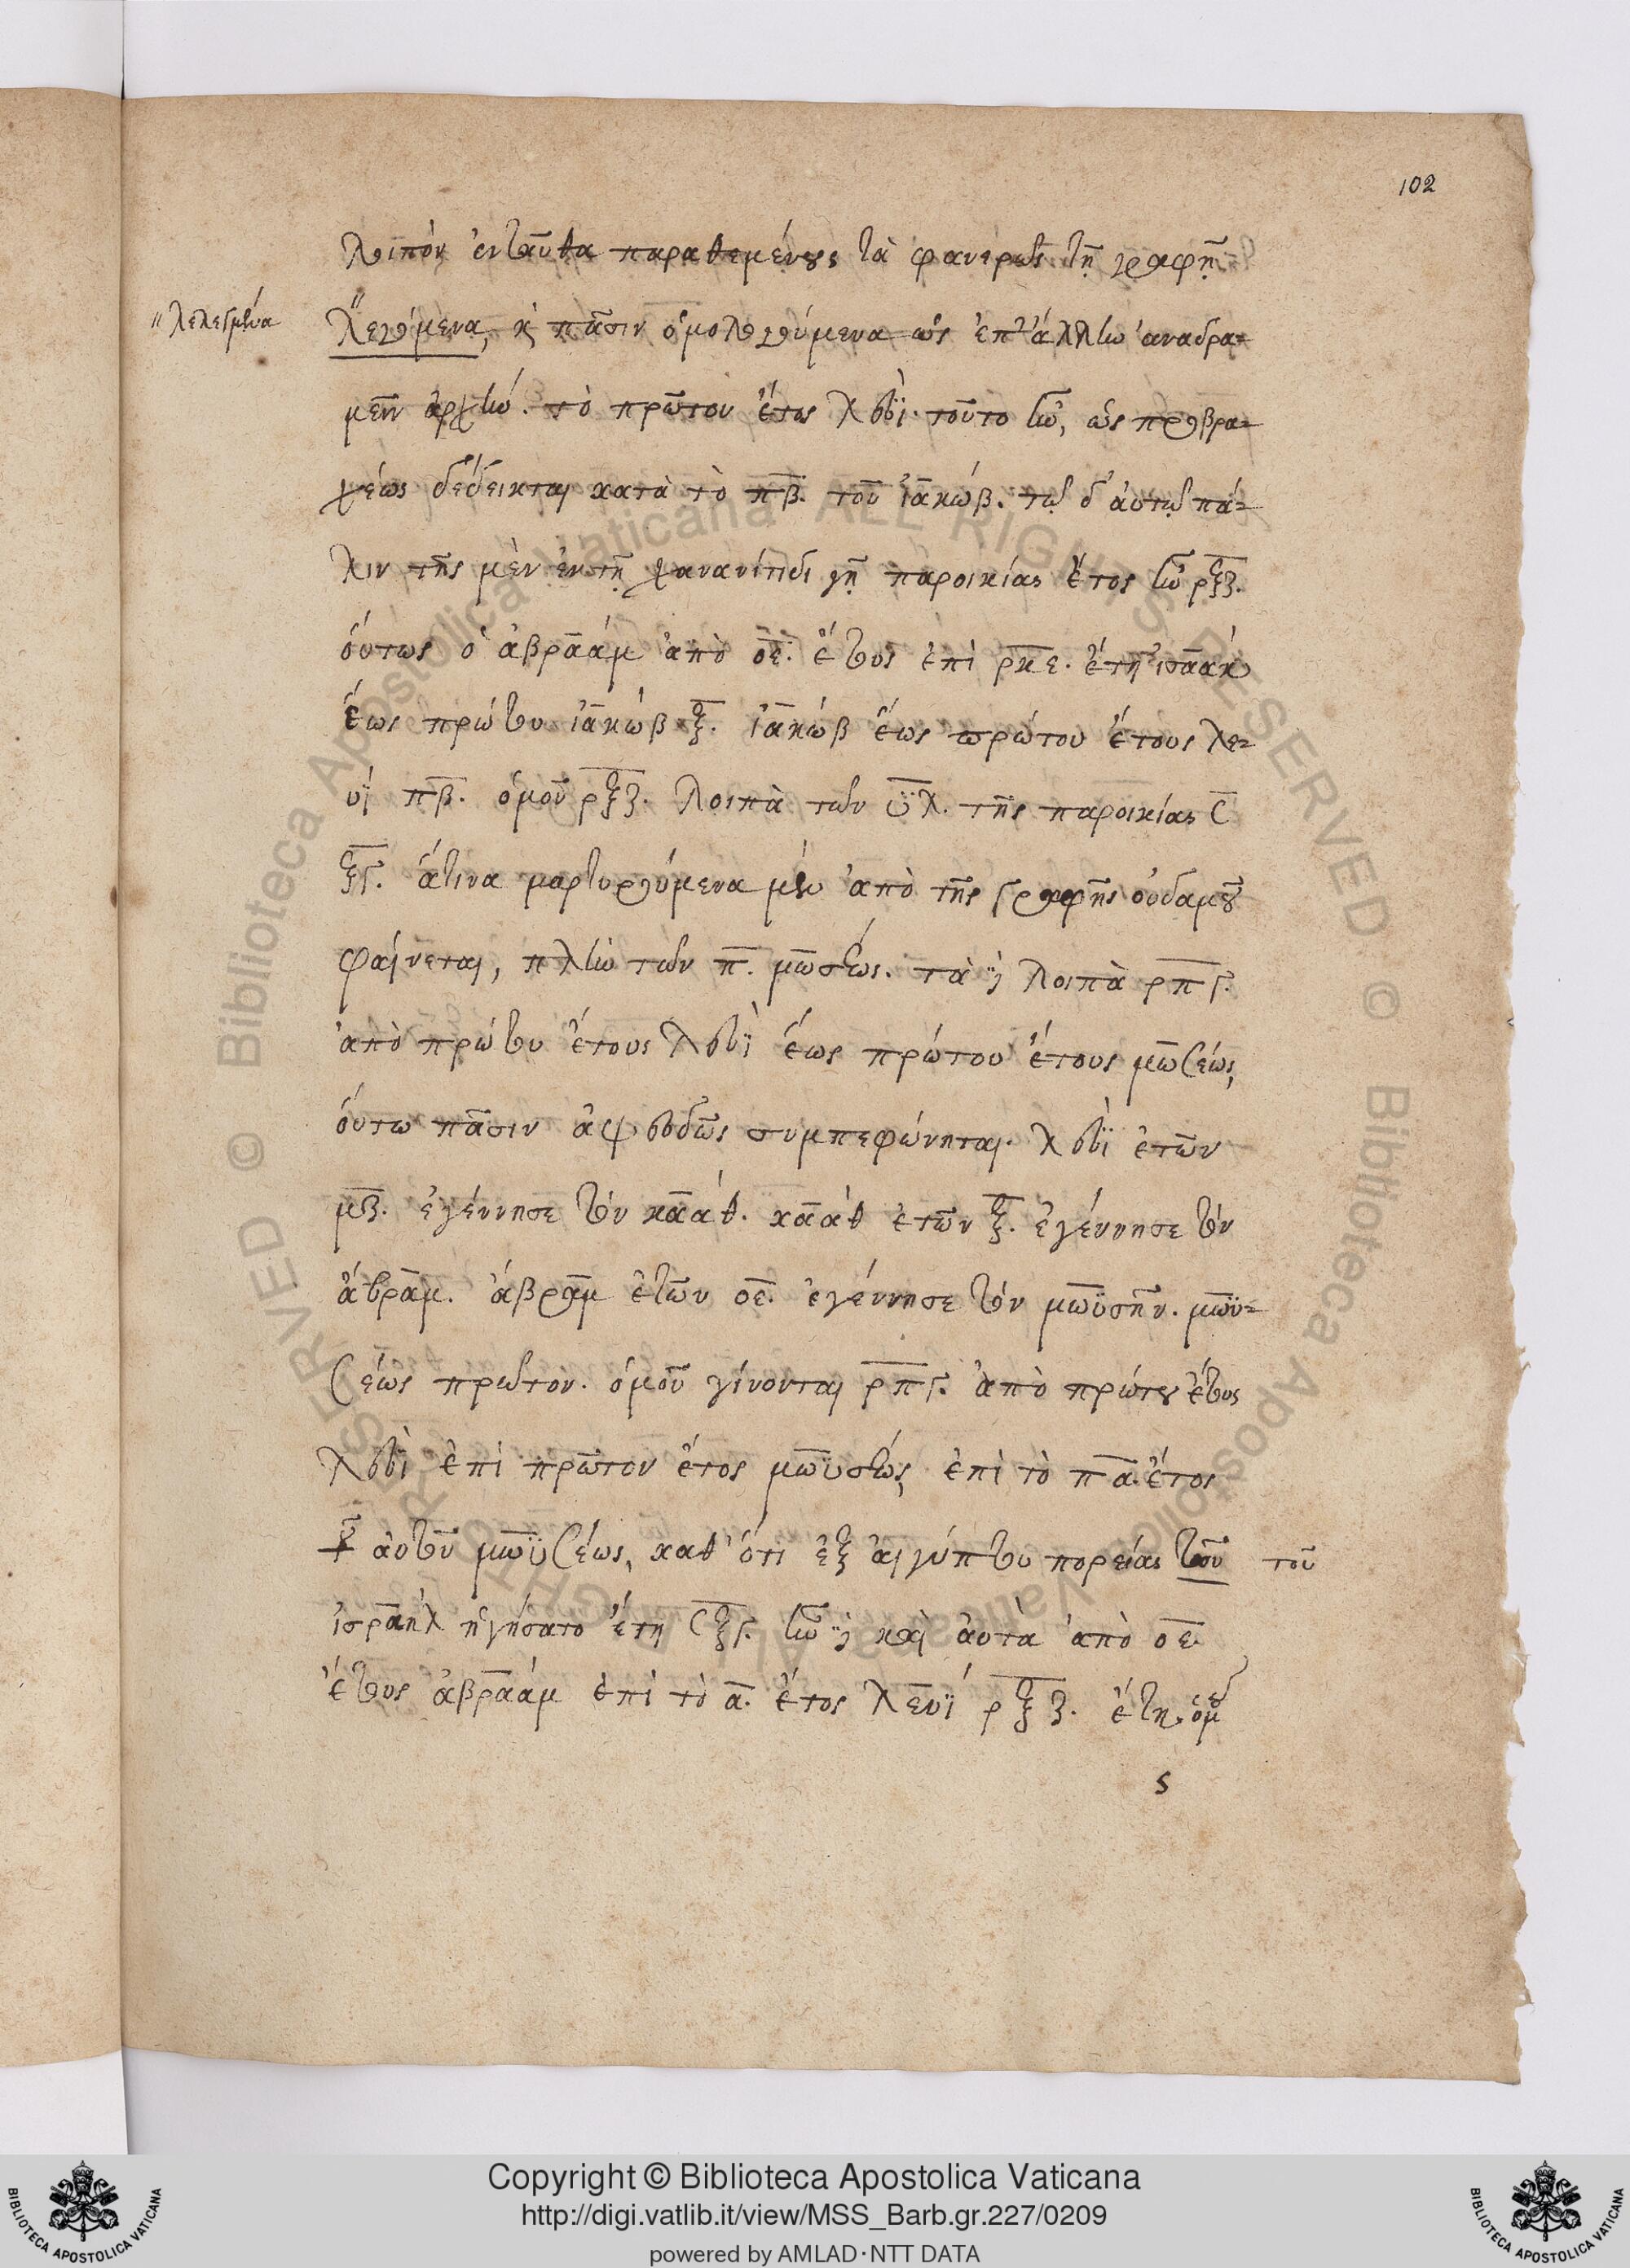 102
λοιπὸν ἐνταῦθα παραθεμένους τὰ φανερῶς τῇ γραφῇ
" λελεγμένα
λεγόμενα, κ πᾶσιν ὁμολογούμενα ὡς ἐπ' ἄλλην ἀναδρα=
μεῖν ἀρχήν. τὸ πρῶτον ἔτος λευῒ τοῦτο ἦν, ὡς προβρα=
χέως δέδεικται κατὰ τὸ πβ. τοῦ ἰακώβ. τῷ δ' ἀυτῷ πά=
λιν τῆς μὲν ἐν τῇ χανανίτιδι γῇ παροικίας ἔτος ἦν ρξζ.
ὅυτως ὁ ἀβραάμ ἀπὸ οε. ἔτους ἐπὶ ρκε. ἔτη ἰσαάκ
ἕως πρώτου ἰακώβ ξ. ἰακώβ ἕως πρώτου ἔτους λε=
υῒ πβ. ὁμοῦ ρξζ. λοιπὰ τῶν υλ. τῆς παροικίας σ
ξγ. ἅτινα μαρτυρούμενα μὲν ἀπὸ τῆς γραφῆς οὐδαμοῦ
φαίνεται, πλὴν τῶν π. μωσέως. τὰ δὲ λοιπὰ ρπγ.
ἀπὸ πρώτου ἔτους λευῒ ἕως πρώτου ἔτους μωσέως,
ὅυτω πᾶσιν ἀψευδῶς συμπεφώνηται. λευῒ ἐτῶν
μζ. ἐγέννησε τὸν καάθ. καάθ ἐτῶν ξ. ἐγέννησε τὸν
ἄβραμ. ἄβραμ ἐτῶν οε. ἐγέννησε τὸν μωϋσῆν. μωϋ=
σέως πρῶτον. ὁμοῦ γίνονται ρπγ. ἀπὸ πρώτου ἔτους
λευῒ ἐπὶ πρῶτον ἔτος μωϋσέως, ἐπὶ τὸ πα. ἔτος
τοῦ ἀυτοῦ μωϋσέως, καθ' ὅτι ἐξ αἰγύπτου πορείας τοῦ του
ἰσραὴλ ἡγήσατο ἔτη σξγ. ἦν δὲ καὶ ἀυτὰ ἀπὸ οε.
ἔτους ἀβραάμ ἐπὶ τὸ α. ἔτος λευΐ ρξζ. ἔτη. ὁμοῦ
ς
Copyright © Biblioteca Apostolica Vaticana
http://digi.vatlib.it/view/MSS_Barb.gr.227/0209
powered by AMLAD·NTT DATA
BIBLIOTECA APOSTOLICA VATICANA
BIBLIOTECA APOSTOLICA VATICANA